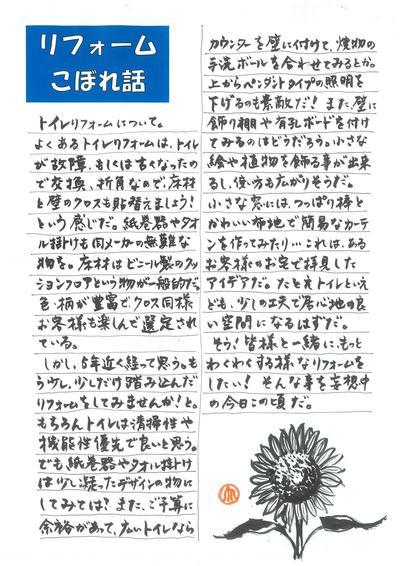 リフォーム
こぼれ話
トイレリフォームについて。
よくあるトイレリフォームは、トイレ
が故障、もしくは古くなったの
で交換、折角なので、床材
と壁のクロスも貼替えましょう!
という感じだ。紙巻器やタオ
ル掛けも同メーカーの無難な
物を。床材はビニール製のクッ
ションフロアという物が一般的だ。
色・柄が豊富で、クロス同様
お客様も楽しんで選定され
ている。
しかし、5年近く経って思う。も
う少し、少しだけ踏み込んだ
リフォームをしてみませんか!と。
もちろんトイレは清掃性や
機能性優先で良いと思う。
でも紙巻器やタオル掛け
は少し凝ったデザインの物に
してみては?また、ご予算に
余裕があって、広いトイレなら
カウンターを壁に付けて、焼物の
手洗ボールを合わせてみるとか。
上からペンダントタイプの照明を
下げるのも素敵だ!また、壁に
飾り棚や有孔ボードを付け
てみるのはどうだろう。小さな
絵や植物を飾る事が出来
るし、使い方も広がりそうだ。
小さな窓には、つっぱり棒と
かわいい布地で簡易なカーテ
ンを作ってみたり…これは、ある
お客様のお宅で拝見した
アイデアだ。たとえトイレといえ
ども、少しの工夫で居心地の良
い空間になるはずだ。
そう!皆様と一緒に、もっと
わくわくする様なリフォームを
したい!そんな事を妄想中
の今日この頃だ。